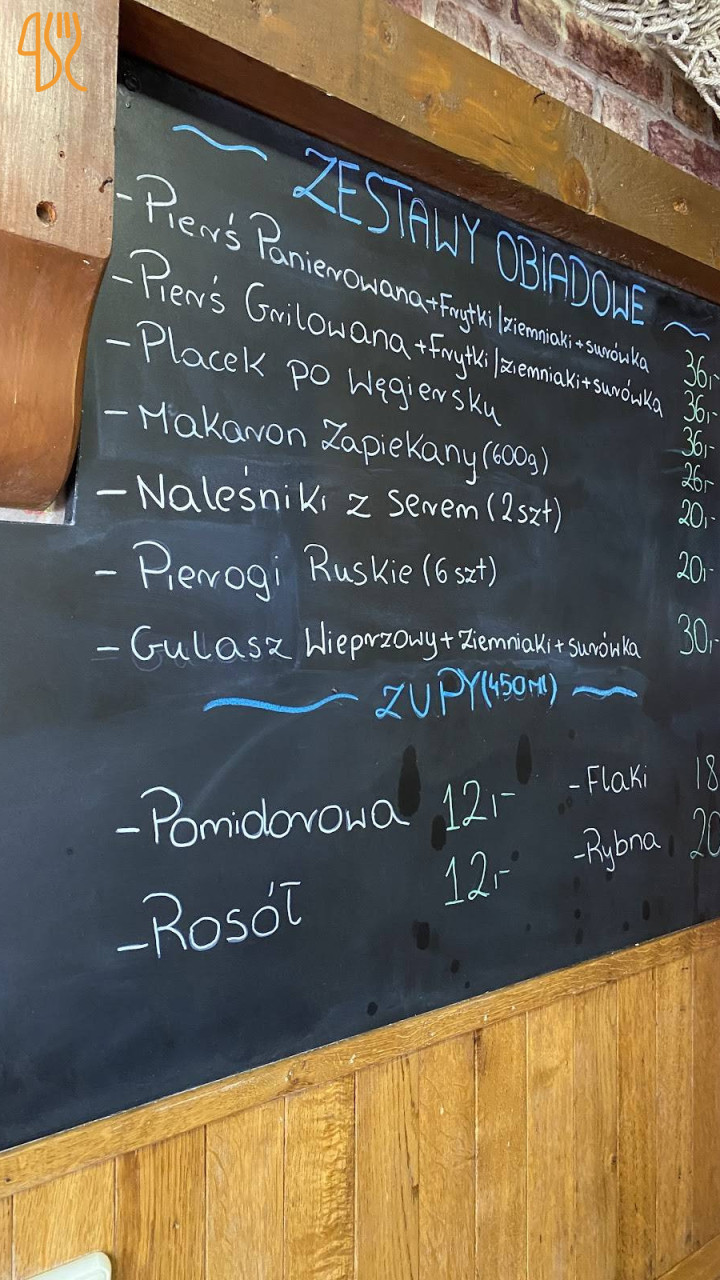 ZESTAWY OBIADOWE
- Pierś Panierowana + frytki / ziemniaki + surówka 36,-
- Pierś Grilowana + frytki / ziemniaki + surówka 36,-
- Placek po Węgiersku 36,-
- Makaron Zapiekany (600g) 26,-
- Naleśniki z serem (2 szt) 20,-
- Pierogi Ruskie (6 szt) 20,-
- Gulasz Wieprzowy + ziemniaki + surówka 30,-
ZUPY (450 ml)
- Pomidorowa 12,-
- Rosół 12,-
- Flaki 18
- Rybna 20